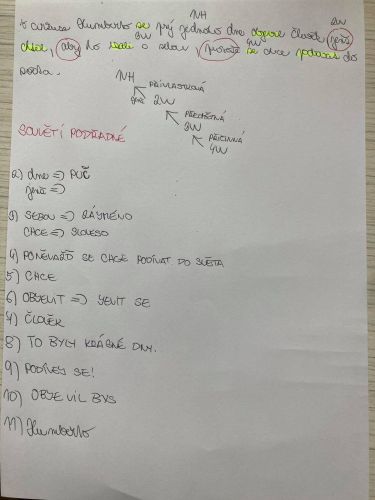 1H
V cirkuse Humberto se prý jednoho dne objeví člověk, jenž 2W
chce, aby ho vzali o sebou, protože se chce podívat do
3W 4W
světa.
1H
PŘÍVLASTKOVÁ
jenž 2W
PŘEDMĚTNÁ
3W
PŘÍČINNÁ
4W
SOUVĚTÍ PODŘADNÉ
2) dne => PUČ
jenž =>
3) SEBOU => ZÁJMENO
CHCE => SLOVESO
4) PONĚVADŽ SE CHCE PODÍVAT DO SVĚTA
5) CHCE
6) OBJEVIT => JEVIT SE
7) ČLOVĚK
8) TO BYLY KRÁSNÉ DNY.
9) PODÍVEJ SE!
10) OBJEVIL BYS
11) Humberto